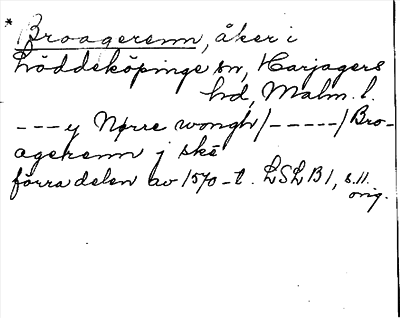 * Broagerenn, åker i
Löddeköpinge sn, Harjagers
hd, Malm. l.
---y Nørre wongh/-----/Bro-
agerenn j skē
förra delen av 1570-t. LSLB1, s. 11.
orig.